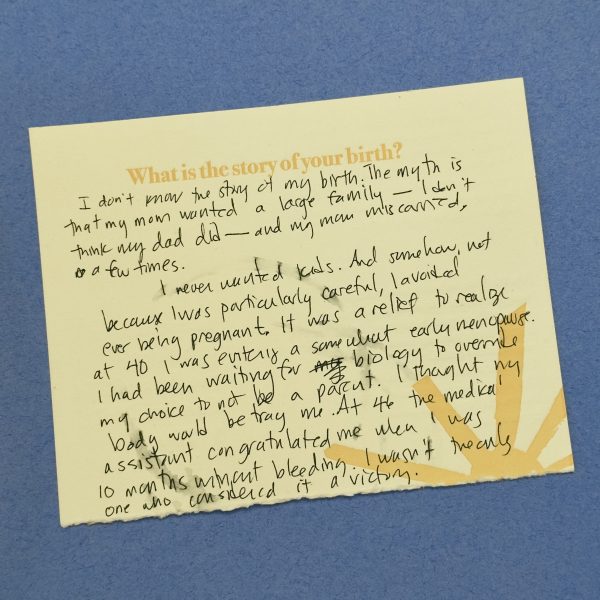 What is the story of your birth?
I don't know the story of my birth. The myth is
that my mom wanted a large family — I don't
think my dad did — and my mom miscarried,
a few times.
I never wanted kids. And somehow, not
because I was particularly careful, I avoided
ever being pregnant. It was a relief to realize
at 40 I was entering a somewhat early menopause.
I had been waiting for biology to override
my choice to not be a parent. I thought my
body would betray me. At 46 the medical
assistant congratulated me when I was
10 months without bleeding. I wasn't the only
one who considered it a victory.